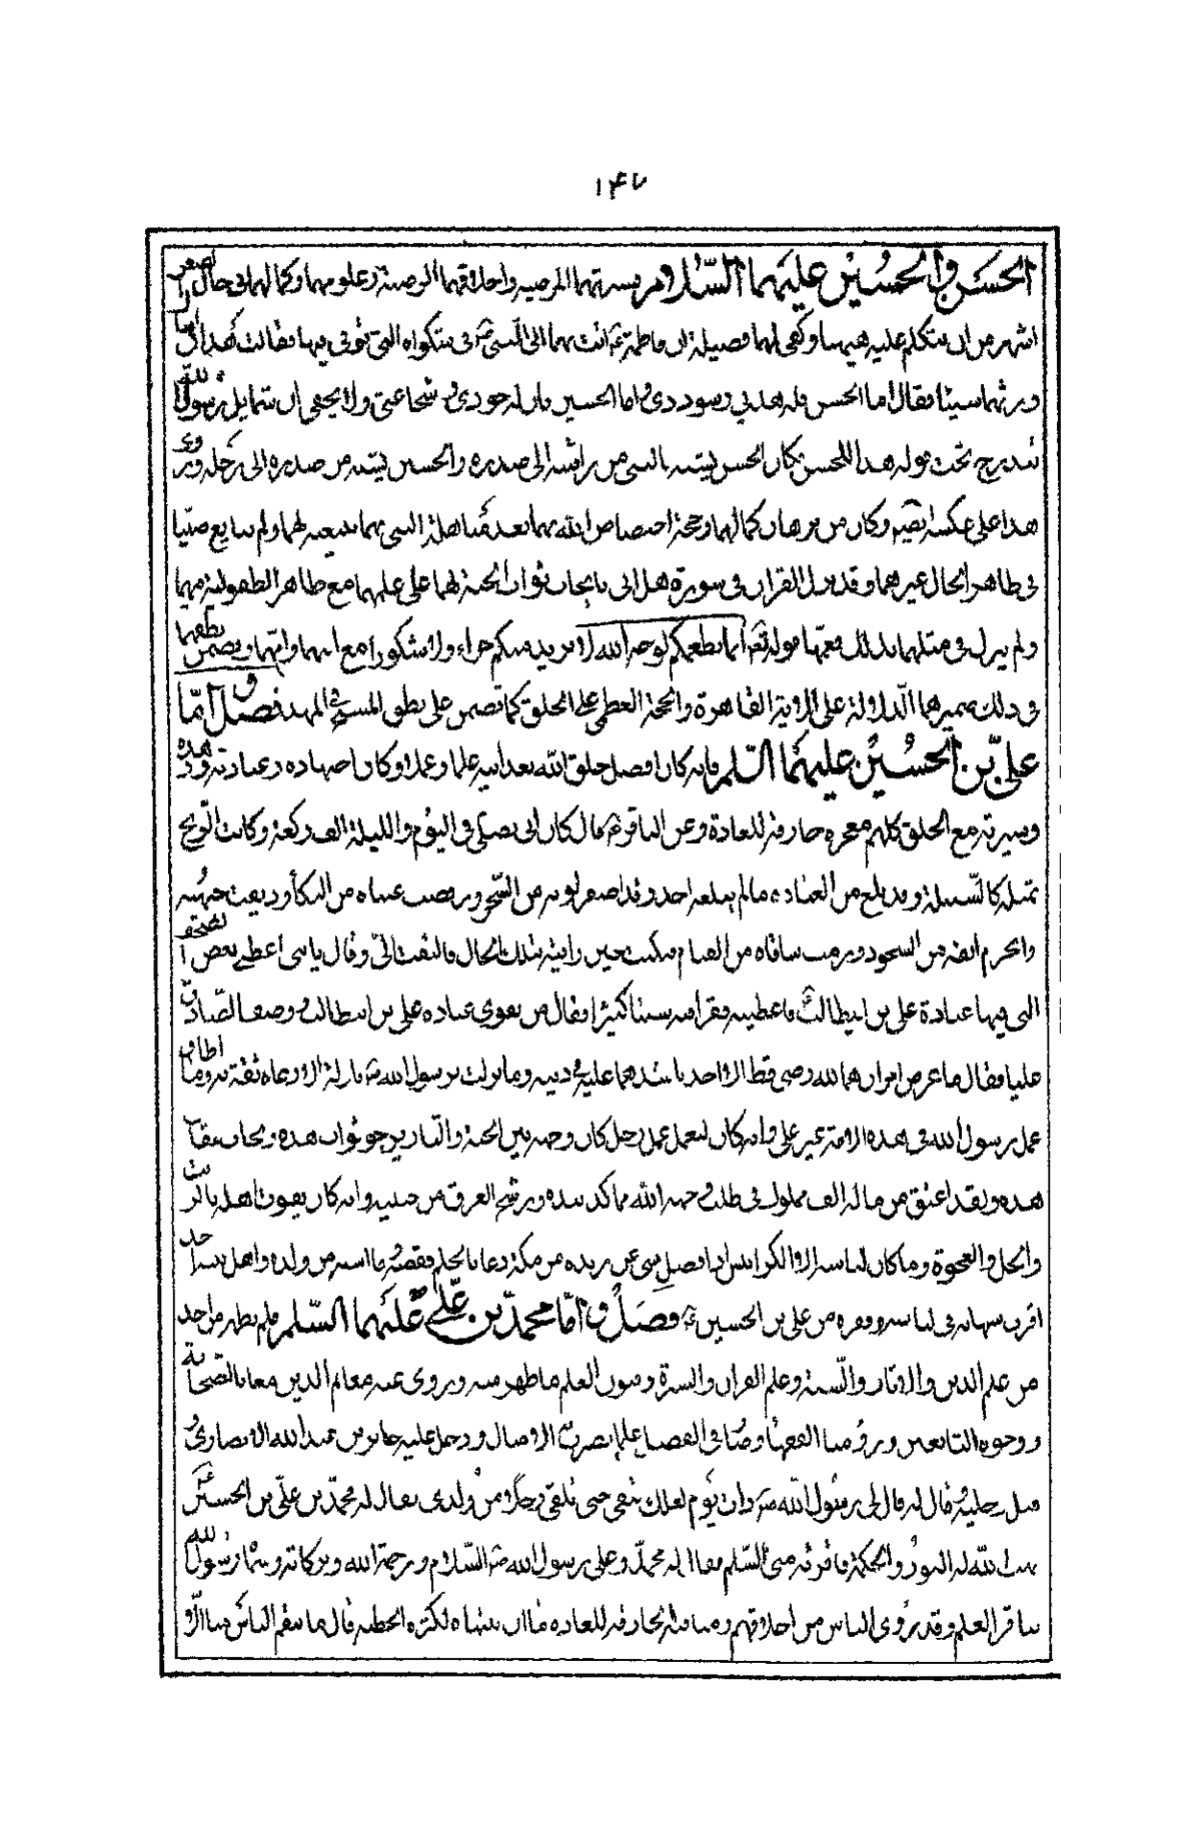 ١٤٧
الحسن والحسين عليهما السلام وسيرتهما المرضية واخلاقهما الرضية وعلومهما وكمالهما في حال الصغر
اشهر من ان يتكلم عليه هيهنا وكفى لهما فضيلة ان فاطمة ع اتت بهما الى النبي ص في شكواه التي توفي فيها فقالت هذان ابناك
ورثهما شيئا فقال اما الحسن فله هديي وسوددي واما الحسين فان له جودي وشجاعتي ولا يخفى ان شمايل رسول الله
تندرج تحت قوله هذا للحسن وكان الحسن يشبه بالنبي من راسه الى صدره والحسين يشبه من صدره الى رجله وروي
هذا على عكسه ايضا وكان من برهان كمالهما وحجة اختصاص الله بهما بعد مباهلة النبي بهما بيعته لهما ولم يبايع صبيا
في ظاهر الحال غيرهما وقد نزل القران في سورة هل اتى بايجاب ثواب الجنة لهما على عملهما مع ظاهر الطفولية فيهما
ولم ينزل في مثلهما بذلك فعمهما قوله تعالى انما نطعمكم لوجه الله لا نريد منكم جزاء ولا شكورا مع ابيهما وامهما وتضمن نطقهما
في ذلك ضميرهما الدلالة على الاية القاهرة والحجة العظمى على الخلق كما تضمن على نطق المسيح في المهد فصل واما
علي بن الحسين عليهما السلم فانه كان افضل خلق الله بعد ابيه علما وعملا وكان اجتهاده وعبادته وزهده
وسيرته مع الخلق كلهم معجزة خارقة للعادة وعن الباقر ع قال كان ابي يصلي في اليوم والليلة الف ركعة وكانت الريح
تميله كالسنبلة وقد بلغ من العبادة ما لم يبلغه احد وقد اصفر لونه من السهر ورمصت عيناه من البكا ودبرت جبهته
وانخرم انفه من السجود وورمت ساقاه من القيام فبكيت حين رايته بتلك الحال فالتفت الي وقال يا بني اعطني بعض الصحف
التي فيها عبادة علي بن ابيطالب ع فاعطيته فقرا منه شيئا كثيرا فقال من يقوى عباده علي بن ابيطالب ووصف الصادق
عليا فقال ما عرض امران هما لله رضى قط الا اخذ باشدهما عليه في دينه وما نزلت برسول الله ص نازلة الا دعاه ثقة به وما اطاق
عمل رسول الله في هذه الامة غير علي وانه كان ليعمل عمل رجل كان وجهه بين الجنة والنار يرجو ثواب هذه ويخاف عقاب
هذه ولقد اعتق من ماله الف مملوك في طلب وجه الله مما كد بيده ورشح العرق من جبينه وانه كان يقوت اهله بالزيت
والخل والعجوة وما كان لباسه الا الكرابيس
اقرب شبها به في لباسه وفقهه من علي بن الحسين ع فصل واما محمد بن علي عليهما السلم فلم يظهر من احد
من علم الدين والاثار والسنة وعلم القران والسيرة وفنون العلم ما ظهر منه وروى عنه معالم الدين بقايا الصحابة
ووجوه التابعين ورؤسا الفقها وصار في الفضل علما يضرب به الامثال ودخل عليه جابر بن عبد الله الانصاري و
قال له قال لي رسول الله ص ذات يوم لعلك تبقى حتى تلقى رجلا من ولدي يقال له محمد بن علي بن الحسين
يهب الله له النور والحكمة فاقرئه مني السلم فقال له محمد وعلى رسول الله ص السلام ورحمة الله وبركاته وسماه رسول الله
باقر العلم وقد روى الناس من اخلاقهم ومناقبه الخارقة للعادة ما ان بيناه لكثر به الخطب قال ما ينقم الناس منا الا